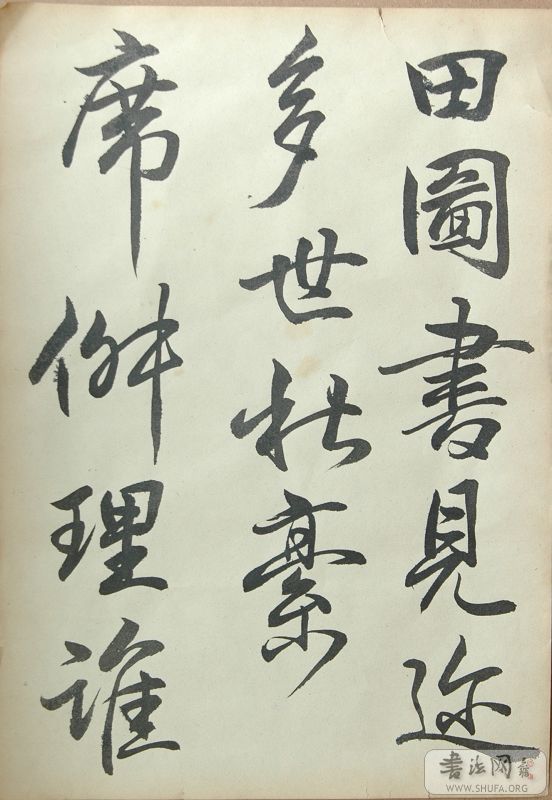 田圖書見
多世
席理誰
書法网
WWW.SHUFA.ORG